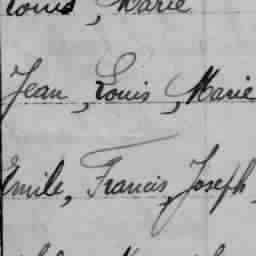 Louis, Marie
Jean, Louis, Marie
Emile, Francis, Joseph,